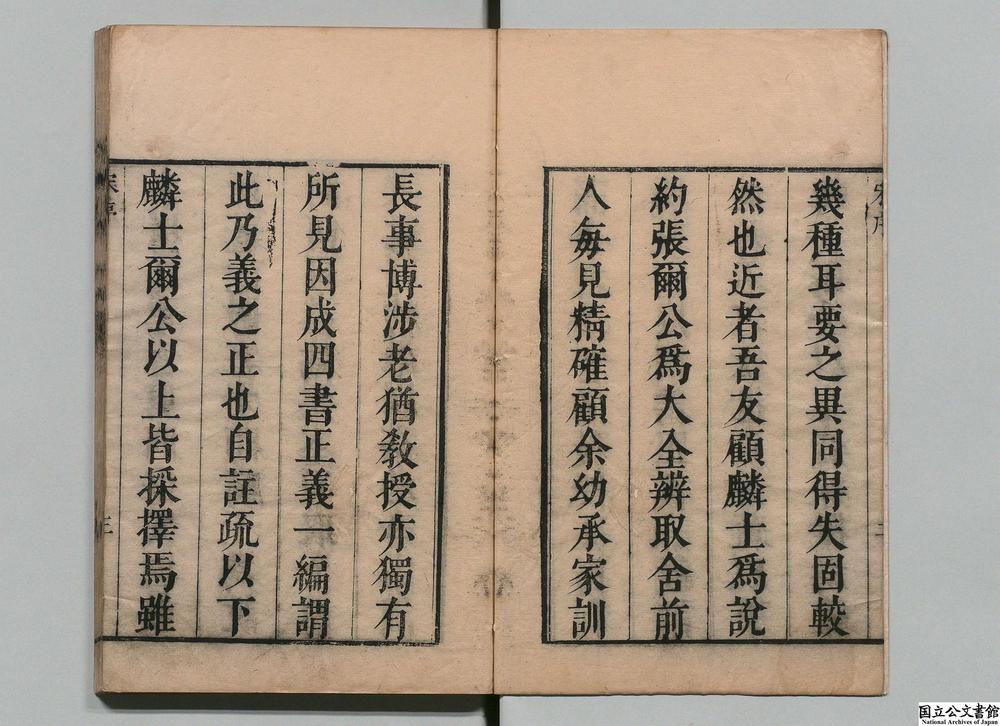 幾種耳要之異同得失固較
然也近者吾友顧麟士爲說
約張爾公爲大全辨取舍前
人每見精確顧余幼承家訓
長事博涉老猶教授亦獨有
所見因成四書正義一編謂
此乃義之正也自註疏以下
麟士爾公以上皆採擇焉雖
三
国立公文書館
National Archives of Japan